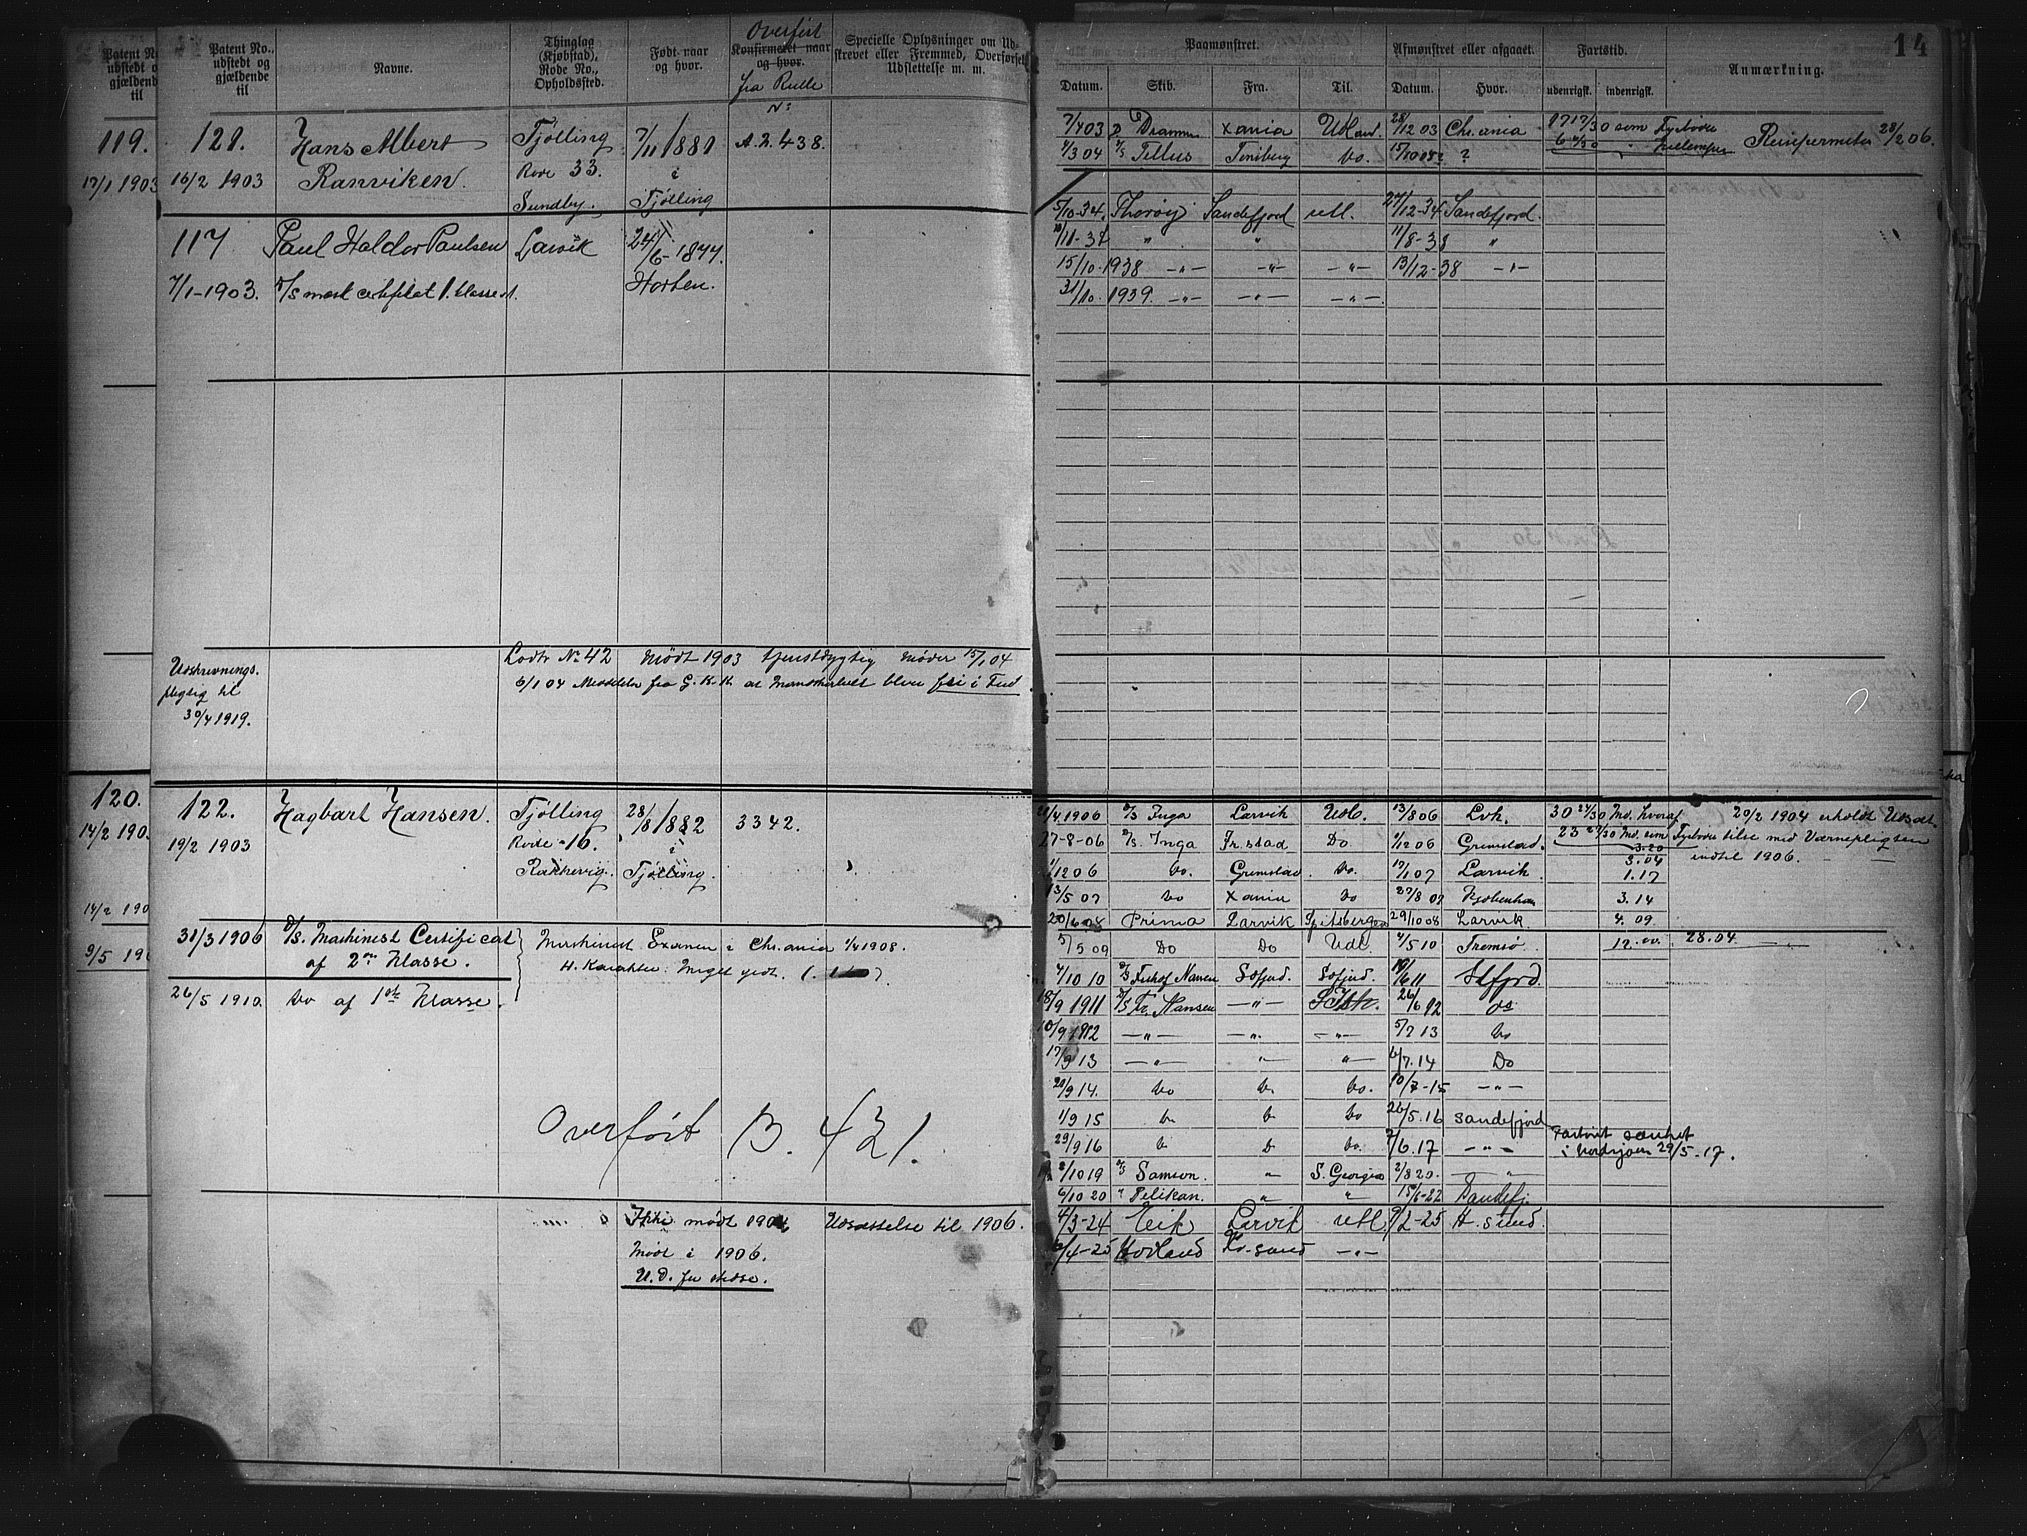 Patent No., udstedt og gjældende til
Navne.
Thinglag (Kjøbstad), Rode No., Opholdssted.
Født naar og hvor.
Overført
Konfirmeret naar og hvor.
fra Rulle
No
Specielle Oplysninger om Udstrevet eller Fremmed, Overførsel, Udslettelse m. m.
Paamønstret.
Afmønstret eller afgaaet.
Fartstid.
Anmærkning.
14
Datum. Skib. Fra. Til. Datum. Hvor. udenrigsk. indenrigsk.
119.
17/1 1903
121. Hans Albert Tjølling 7/11 1881 A.2.438.
16/2 1903 Ranviken. Rode 33. i
Sundby. Tjølling
7/4 03 Drammen Xania Udland 28/12 03 Chr.ania
7/3 04 Tellus Tønsberg do. ?
Reisepermiter 28/2 06.
117 Paul Haldor Paulsen Larvik 24/6-1877.
7/1-1903. D/S mask certifikat 1. klasse Horten.
5/10-34. Thorøy Sandefjord utl. 27/12-34 Sandefjord.
" " 11/8-38 "
15/10-1938 -"- -"- -"- 13/12-38 -"-
31/10. 1939. -"- -"- -"-
Udskrivnings.
pligtig til
30/4 1919.
Lodtr No 42 Mødt 1903 tjenstdygtig Møder 15/1 04
6/1 04 Meddelt fra G.K.K. at Mandskabet blev fri i Fred
120.
14/2 190
14/2 190
9/5 19
122. Hagbart Hansen. Tjølling 28/8 1882 3342.
19/2 1903 Rode 16. i
Rakkevig. Tjølling.
21/4 1906 D/S Inga Larvik Udl. 13/8 06 Lvk. 30 24/30 Md. hvoraf 20/2 1904 erholdt Udsæt-
27-8-06 D/S Inga Fr.stad Do 1/12 06 Grimstad. 23 Md. som Fyrbøder telse med Værnepligten
3.20
3.04 indtil 1906.
1/12 06 do. Grimstad do. 17/1 07 Larvik. 1.17
13/5 07 do Xania do 27/8 07 Kjøbenhavn 3.14
20/6 08 Prima Larvik Spitsbergen 29/10 08 Larvik 4.09.
5/5 09 Do Do Udl. 4/5 10 Tromsø 12.00. 28.04.
31/3 1906 D/S. Maskinist Certificat
af 2den Klasse.
Maskinist Examen i Chr.ania 1/4 1908.
H. Karakter: Meget godt.
26/5 1910. do af 1ste Klasse.
4/10 10 D/S Fridtjof Nansen S.fjord. S.fjord. 19/6 11 S.fjord.
18/9 1911 D/S Fr. Nansen -"- 26/6 12 do
10/9 1912 -"- -"- -"- 5/7 13 do
17/9 13 -"- " " 6/7. 14 Do
21/9 14. do do. do. 10/7-15 -"-
1/9 15 do do do 26/5. 16 Sandefjord
29/9 16 do do do. 7/6. 17 -"-
Fartøiet sænket
i Nordsjøen 29/5-17.
2/10 19 D/S Samson. " S. Georgia 2/8 20. "
6/10 20 " Pelikan. " " 15/6-22 Sandefj.
4/3-24 Eik Larvik utl 9/2-25 H.sund.
6/4-25 Hovland Kr.sand -"-
Overført B. 421.
Ikke mødt 1904 Udsættelse til 1906.
Mødt i 1906.
U.D. for disse.